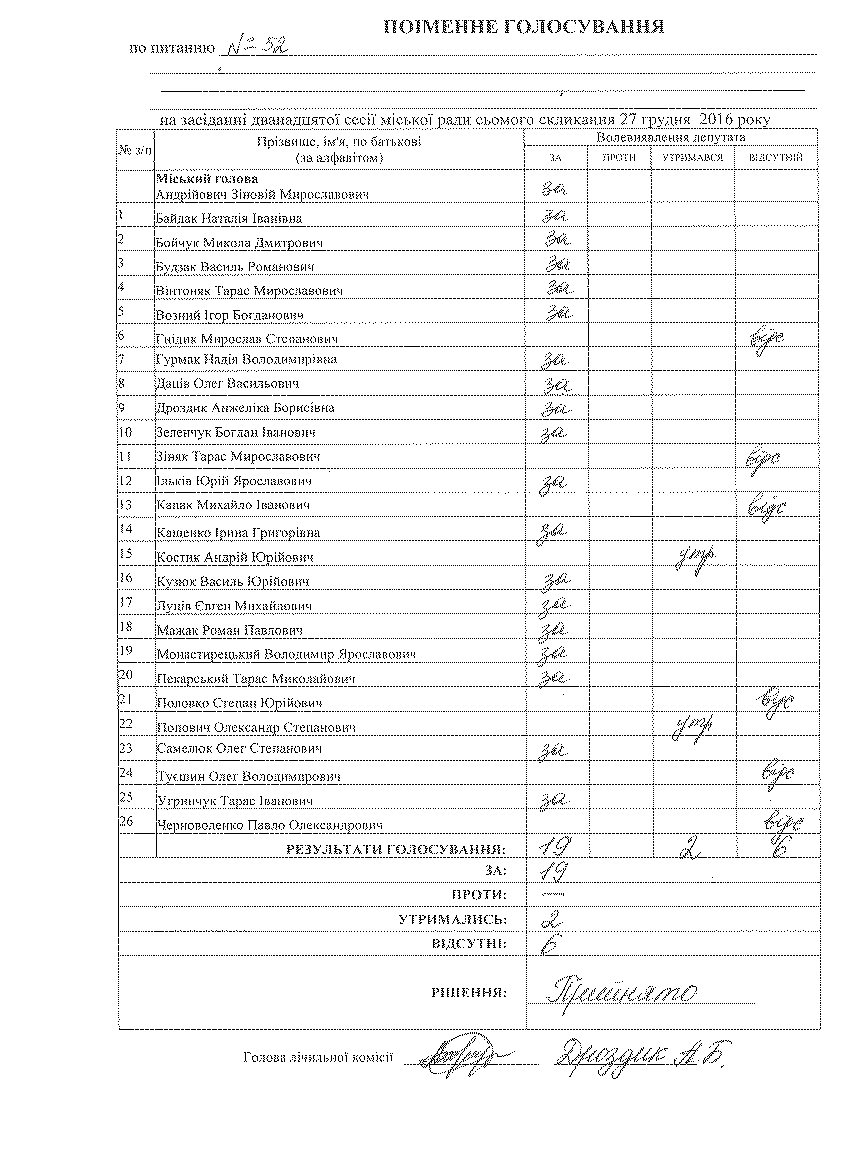 ПОІМЕННЕ ГОЛОСУВАННЯ
по питанню № 52
на засіданні дванадцятої сесії міської ради сьомого скликання 27 грудня 2016 року
№ з/п Прізвище, ім'я, по батькові (за алфавітом) Волевиявлення депутата
ЗА ПРОТИ УТРИМАВСЯ ВІДСУТНІЙ
Міський голова
Андрійович Зіновій Мирославович за
1 Байдак Наталія Іванівна за
2 Бойчук Микола Дмитрович за
3 Будзак Василь Романович за
4 Вінтоняк Тарас Мирославович за
5 Возний Ігор Богданович за
6 Гнідик Мирослав Степанович відс
7 Гурмак Надія Володимирівна за
8 Даців Олег Васильович за
9 Дроздик Анжеліка Борисівна за
10 Зеленчук Богдан Іванович за
11 Зіняк Тарас Мирославович відс
12 Ільків Юрій Ярославович за
13 Капак Михайло Іванович відс
14 Кащенко Ірина Григорівна за
15 Костик Андрій Юрійович утр
16 Кузюк Василь Юрійович за
17 Луців Євген Михайлович за
18 Мажак Роман Павлович за
19 Монастирецький Володимир Ярославович за
20 Пекарський Тарас Миколайович за
21 Половко Степан Юрійович відс
22 Попович Олександр Степанович утр
23 Самелюк Олег Степанович за
24 Туєшин Олег Володимирович відс
25 Угринчук Тарас Іванович за
26 Черноволенко Павло Олександрович відс
РЕЗУЛЬТАТИ ГОЛОСУВАННЯ: 19 2 6
ЗА: 19
ПРОТИ: —
УТРИМАЛИСЬ: 2
ВІДСУТНІ: 6
РІШЕННЯ: Прийнято
Голова лічильної комісії Дроздик А.Б.